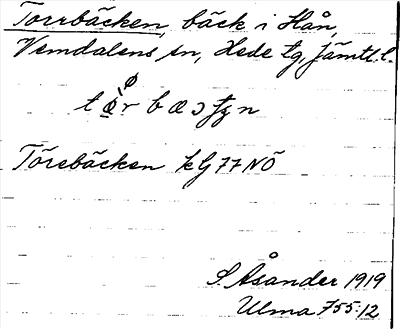 Torrbäcken, bäck i Hån,
Vemdalens sn, Hede tg, Jämtl. l.
Törebäcken kG 77 NÖ
S. Åsander 1919
Ulma 755:12